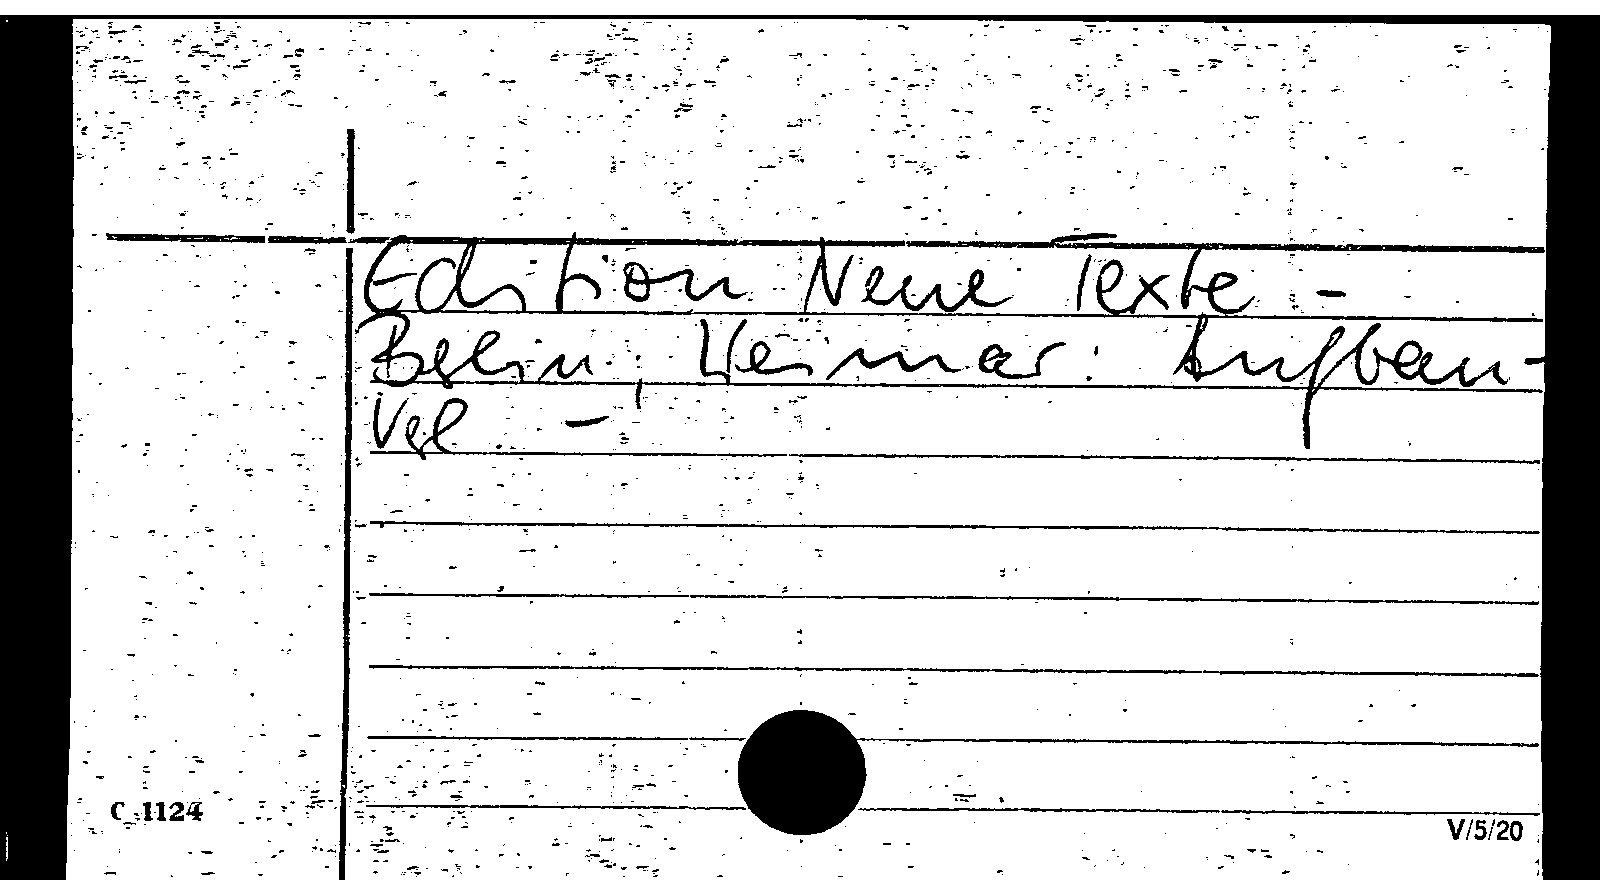 Edition Neue Texte -
Berlin, Weimar: Aufbau-
Verl. -
C 1124
V/5/20